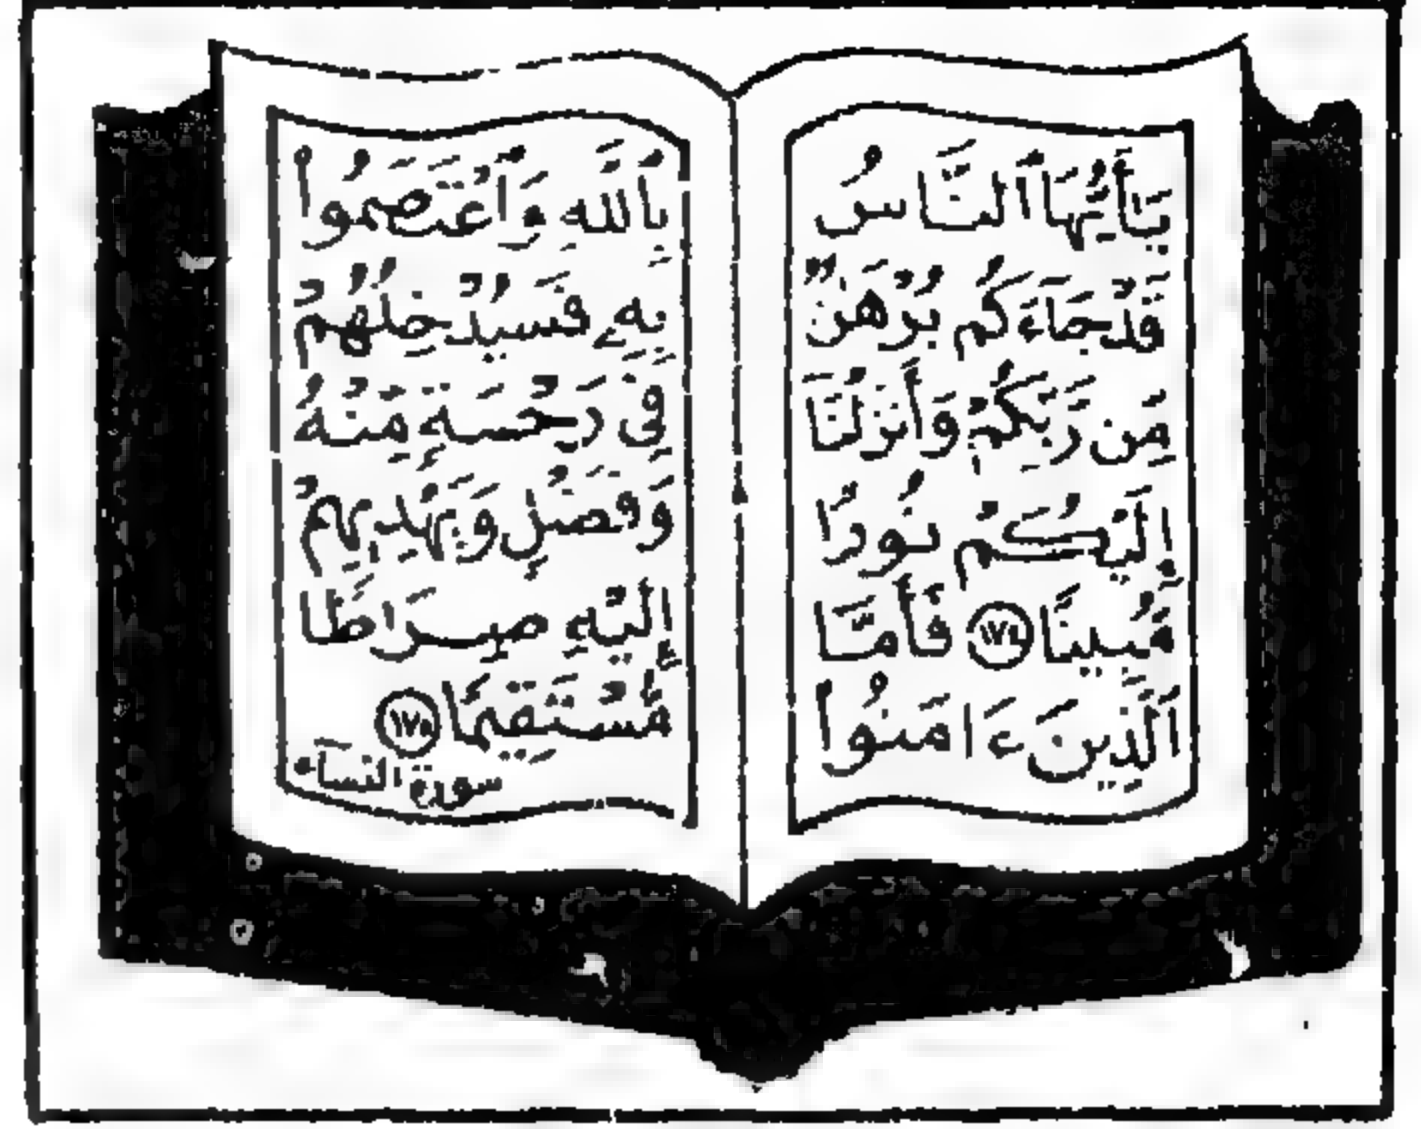 يَٰٓأَيُّهَا ٱلنَّاسُ
قَدْ جَآءَكُم بُرْهَٰنٌ
مِّن رَّبِّكُمْ وَأَنزَلْنَآ
إِلَيْكُمْ نُورًا
مُّبِينًا ١٧٤ فَأَمَّا
ٱلَّذِينَ ءَامَنُوا۟
بِٱللَّهِ وَٱعْتَصَمُوا۟
بِهِۦ فَسَيُدْخِلُهُمْ
فِى رَحْمَةٍ مِّنْهُ
وَفَضْلٍ وَيَهْدِيهِمْ
إِلَيْهِ صِرَٰطًا
مُّسْتَقِيمًا ١٧٥
سورة النسآء